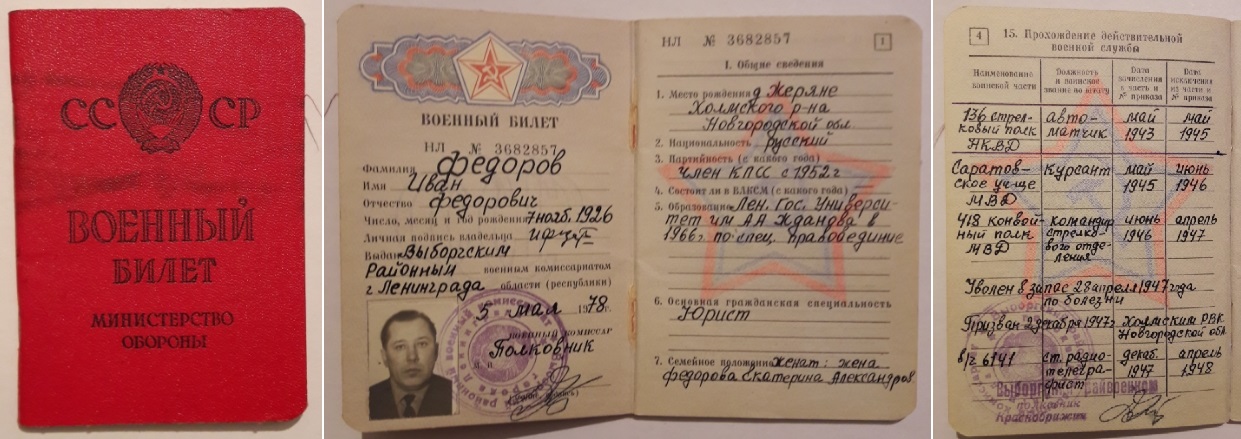 СССР
ВОЕННЫЙ
БИЛЕТ
МИНИСТЕРСТВО
ОБОРОНЫ
ВОЕННЫЙ БИЛЕТ
НЛ № 3682857
Фамилия Федоров
Имя Иван
Отчество Федорович
Число, месяц и год рождения 7 нояб. 1926
Личная подпись владельца
Выдан Выборгским
Районным военным комиссариатом
г Ленинграда области (республики)
5 мая 1978 г.
военный комиссар
Полковник
НЛ № 3682857 1
I. Общие сведения
1. Место рождения д Жеряне
Холмского р-на
Новгородской обл.
2. Национальность русский
3. Партийность (с какого года)
член КПСС с 1952 г
4. Состоит ли в ВЛКСМ (с какого года)
5. Образование Лен. Гос. Универси-
тет им А.А Жданова в
1966 г. по спец. правовединие
6. Основная гражданская специальность
Юрист
7. Семейное положение женат: жена
Федорова Екатерина Александров
4 15. Прохождение действительной
военной службы
Наименование воинской части
Должность и воинское звание по штату
Дата зачисления в часть и № приказа
Дата исключения из части и № приказа
136 стрел- авто- май май
ковый полк матчик 1943 1945
НКВД
Саратов- Курсант май июнь
ское уч-ще 1945 1946
МВД
418 конвой- командир июнь апрель
ный полк стрелко- 1946 1947
МВД вого отде-
ления
Уволен в запас 28 апреля 1947 года
по болезни
Призван 2 декабря 1947 г Холмским РВК
Новгородской обл
в/ч 6141 ст. радио- декаб. апрель
телегра- 1947 1948
фист
полковник
Краснобрижик